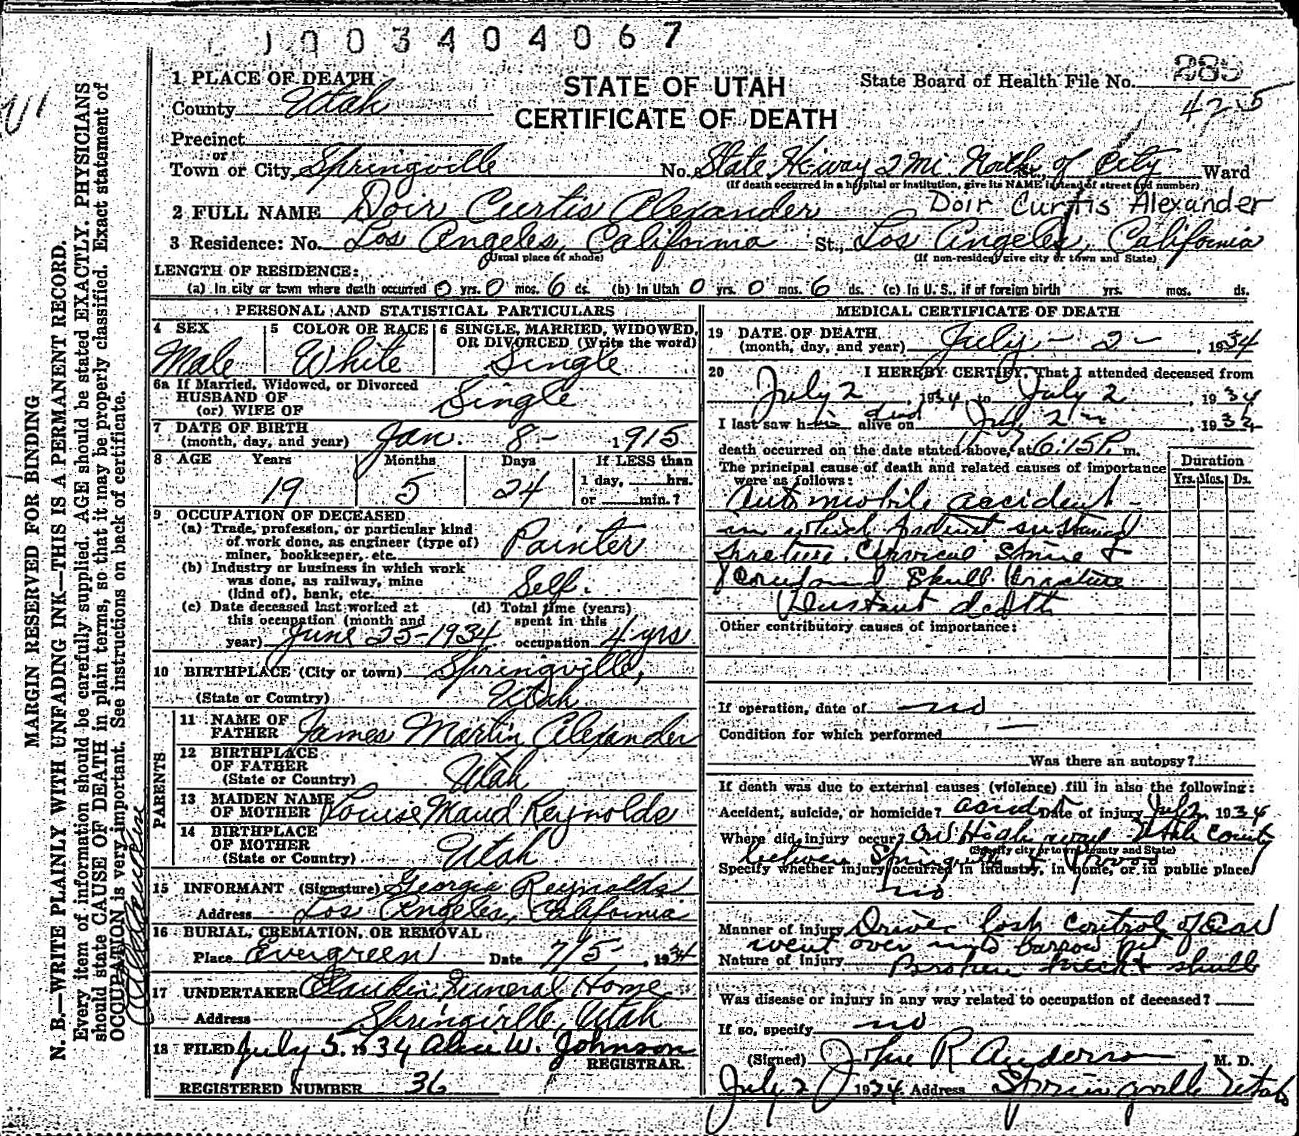 1003404067
1 PLACE OF DEATH
County Utah
STATE OF UTAH
CERTIFICATE OF DEATH
State Board of Health File No. 285
425
Precinct
or
Town or City Springville No. State Hiway 2 Mi. North of City Ward
(If death occurred in a hospital or institution, give its NAME instead of street and number)
2 FULL NAME Doir Curtis Alexander Doir Curtis Alexander
3 Residence: No. Los Angeles, California St., Los Angeles, California
(Usual place of abode) (If non-resident give city or town and State)
LENGTH OF RESIDENCE:
(a) In city or town where death occurred 0 yrs. 0 mos. 6 ds. (b) In Utah 0 yrs. 0 mos. 6 ds. (c) In U. S., if of foreign birth yrs. mos. ds.
PERSONAL AND STATISTICAL PARTICULARS
4 SEX Male
5 COLOR OR RACE White
6 SINGLE, MARRIED, WIDOWED, OR DIVORCED (Write the word) Single
6a If Married, Widowed, or Divorced
HUSBAND OF
(or) WIFE OF Single
7 DATE OF BIRTH
(month, day, and year) Jan. 8 - 1915
8 AGE Years Months Days If LESS than
19 5 24 1 day, hrs.
or min.?
9 OCCUPATION OF DECEASED
(a) Trade, profession, or particular kind
of work done, as engineer (type of)
miner, bookkeeper, etc. Painter
(b) Industry or business in which work
was done, as railway, mine
(kind of), bank, etc. Self.
(c) Date deceased last worked at
this occupation (month and
year) June 25-1934
(d) Total time (years)
spent in this
occupation 4 yrs
10 BIRTHPLACE (City or town) Springville,
(State or Country) Utah
PARENTS
11 NAME OF
FATHER James Martin Alexander
12 BIRTHPLACE
OF FATHER
(State or Country) Utah
13 MAIDEN NAME
OF MOTHER Louise Maud Reynolds
14 BIRTHPLACE
OF MOTHER
(State or Country) Utah
15 INFORMANT (Signature) Georgia Reynolds
Address Los Angeles, California
16 BURIAL, CREMATION, OR REMOVAL
Place Evergreen Date 7/5 - 1934
17 UNDERTAKER Claudin Funeral Home
Address Springville, Utah
18 FILED July 5. 1934 Alice W. Johnson
REGISTRAR.
REGISTERED NUMBER 36
MEDICAL CERTIFICATE OF DEATH
19 DATE OF DEATH
(month, day, and year) July - 2 - , 1934
20 I HEREBY CERTIFY, That I attended deceased from
July 2, 1934 to July 2, 1934
I last saw him dead alive on July 2, 1934
death occurred on the date stated above, at 6:15 P. m.
The principal cause of death and related causes of importance
were as follows:
Duration
Yrs. Mos. Ds.
Automobile accident -
in which patient sustained
fracture Cervical Spine &
Compound Skull Fracture
Instant death
Other contributory causes of importance:
If operation, date of no
Condition for which performed —
Was there an autopsy?
If death was due to external causes (violence) fill in also the following:
Accident, suicide, or homicide? accident Date of injury July 2 1934
Where did injury occur? On Highway Utah County
(Specify city or town, county and State)
between Springville & Provo
Specify whether injury occurred in industry, in home, or in public place
no
Manner of injury Driver lost control of Car
went over into barrow pit
Nature of Injury Broken neck & skull
Was disease or injury in any way related to occupation of deceased?
If so, specify no
(Signed) John R Anderson M. D.
July 2 1934 Address Springville Utah
MARGIN RESERVED FOR BINDING
N. B.—WRITE PLAINLY WITH UNFADING INK—THIS IS A PERMANENT RECORD.
Every item of information should be carefully supplied. AGE should be stated EXACTLY. PHYSICIANS
should state CAUSE OF DEATH in plain terms, so that it may be properly classified. Exact statement of
OCCUPATION is very important. See instructions on back of certificate.
Alexander